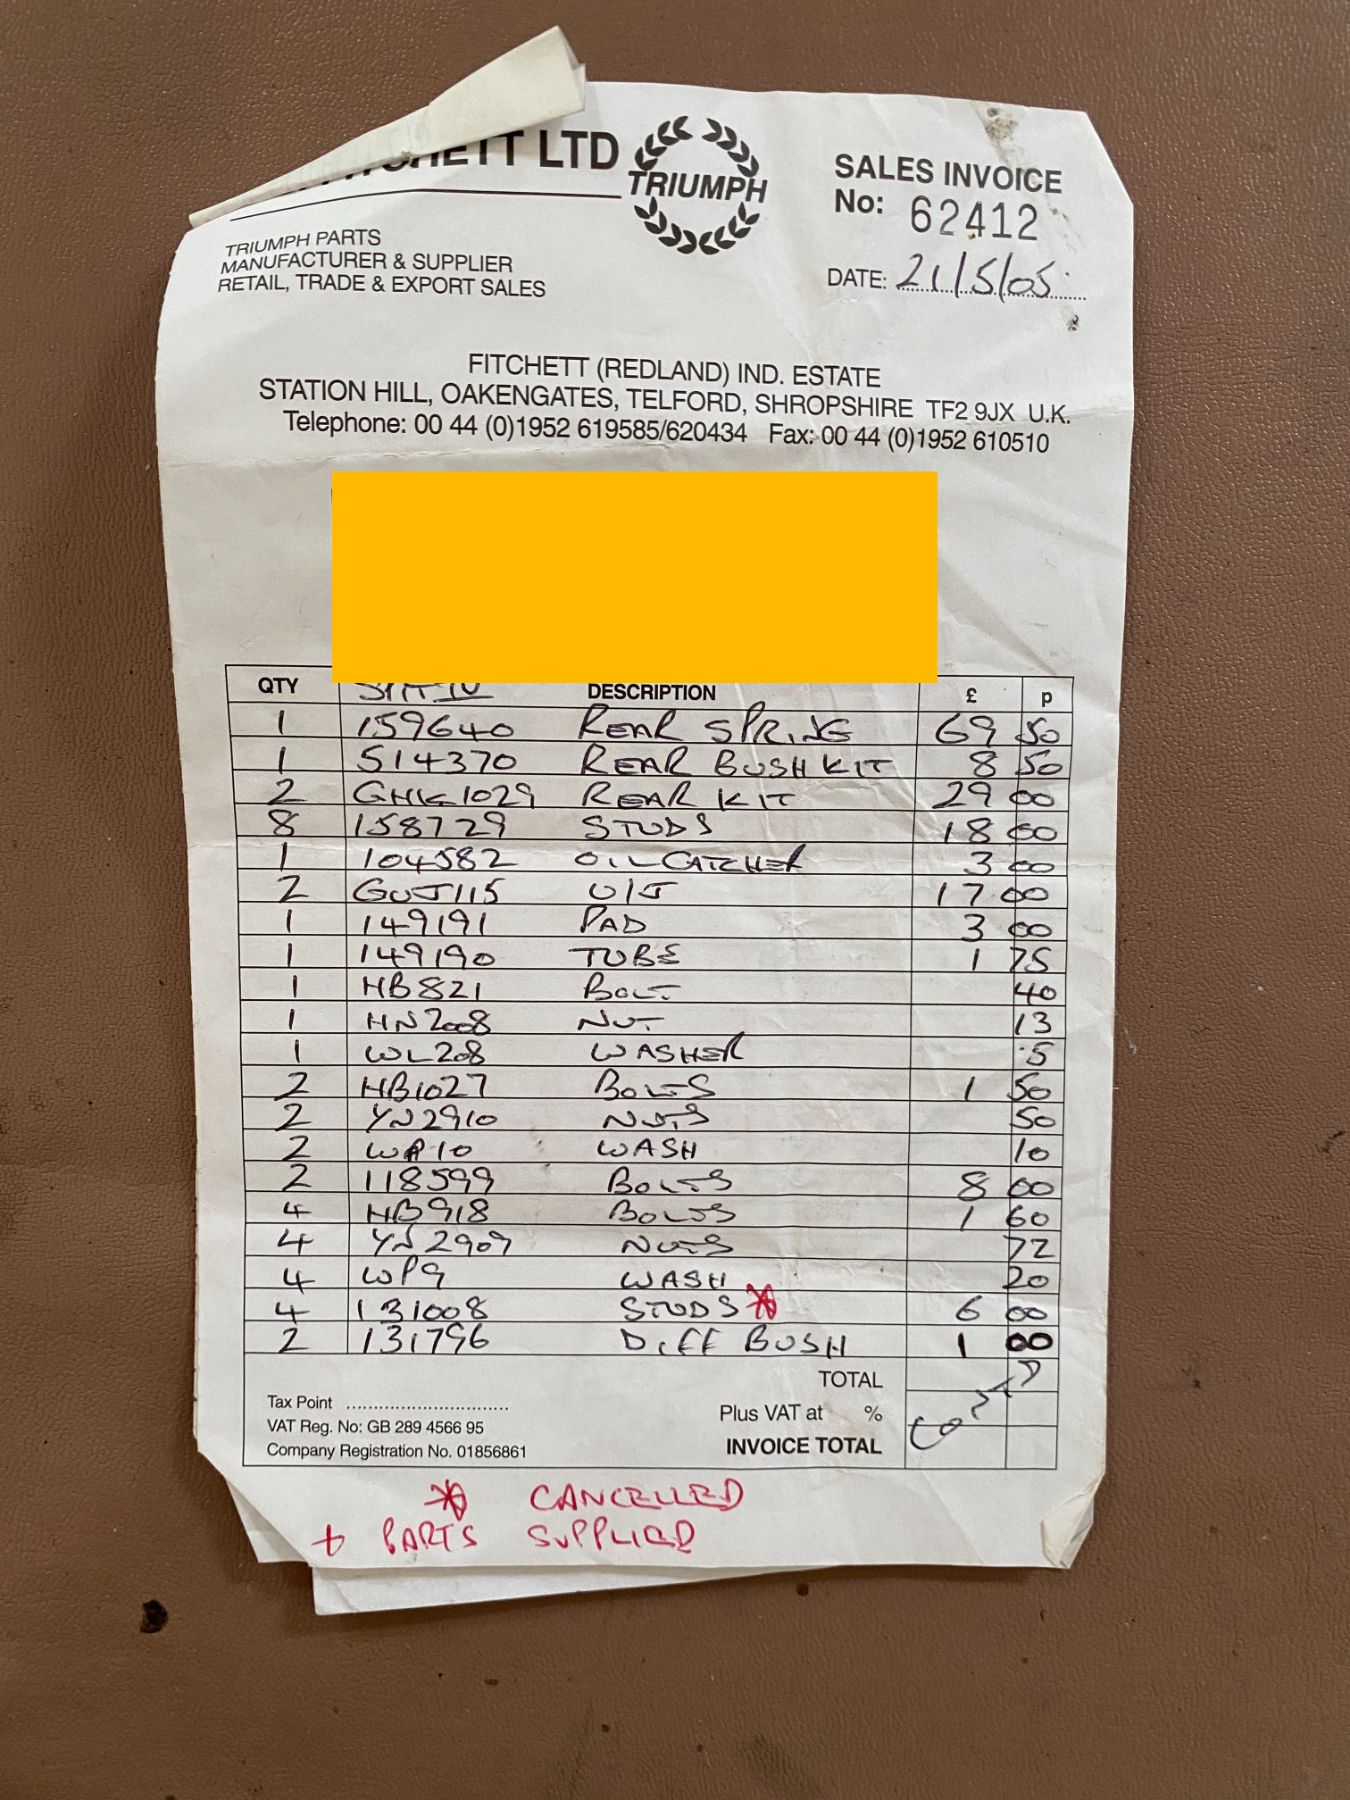 LTD
TRIUMPH
SALES INVOICE
No: 62412
DATE: 21/5/05
TRIUMPH PARTS
MANUFACTURER & SUPPLIER
RETAIL, TRADE & EXPORT SALES
FITCHETT (REDLAND) IND. ESTATE
STATION HILL, OAKENGATES, TELFORD, SHROPSHIRE TF2 9JX U.K.
Telephone: 00 44 (0)1952 619585/620434 Fax: 00 44 (0)1952 610510
QTY DESCRIPTION £ p
1 159640 REAR SPRING 69 50
1 514370 REAR BUSH KIT 8 50
2 GHK1029 REAR KIT 29 00
8 158729 STUDS 18 00
1 104582 OIL CATCHER 3 00
2 GUJ115 U/J 17 00
1 149191 PAD 3 00
1 149190 TUBE 1 75
1 HB821 BOLT 40
1 HN2008 NUT 13
1 WL208 WASHER 5
2 HB1027 BOLTS 1 50
2 YN2910 NUTS 50
2 WP10 WASH 10
2 118599 BOLTS 8 00
4 HB918 BOLTS 1 60
4 YN2909 NUTS 72
4 WP9 WASH 20
4 131008 STUDS * 6 00
2 131796 DIFF BUSH 1 00
TOTAL
Tax Point
Plus VAT at %
VAT Reg. No: GB 289 4566 95
INVOICE TOTAL
Company Registration No. 01856861
* CANCELLED
+ PARTS SUPPLIED